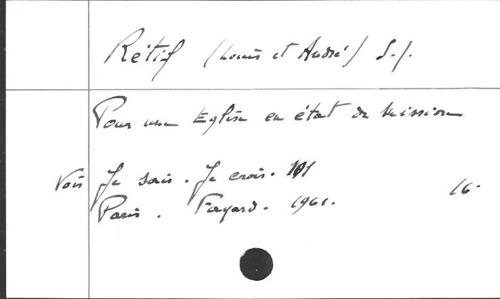 Rétif (Louis et André) S.J.
Pour une Eglise en état de mission
Voir Je sais. Je crois. 101
Paris. Fayard. 1961. 16.